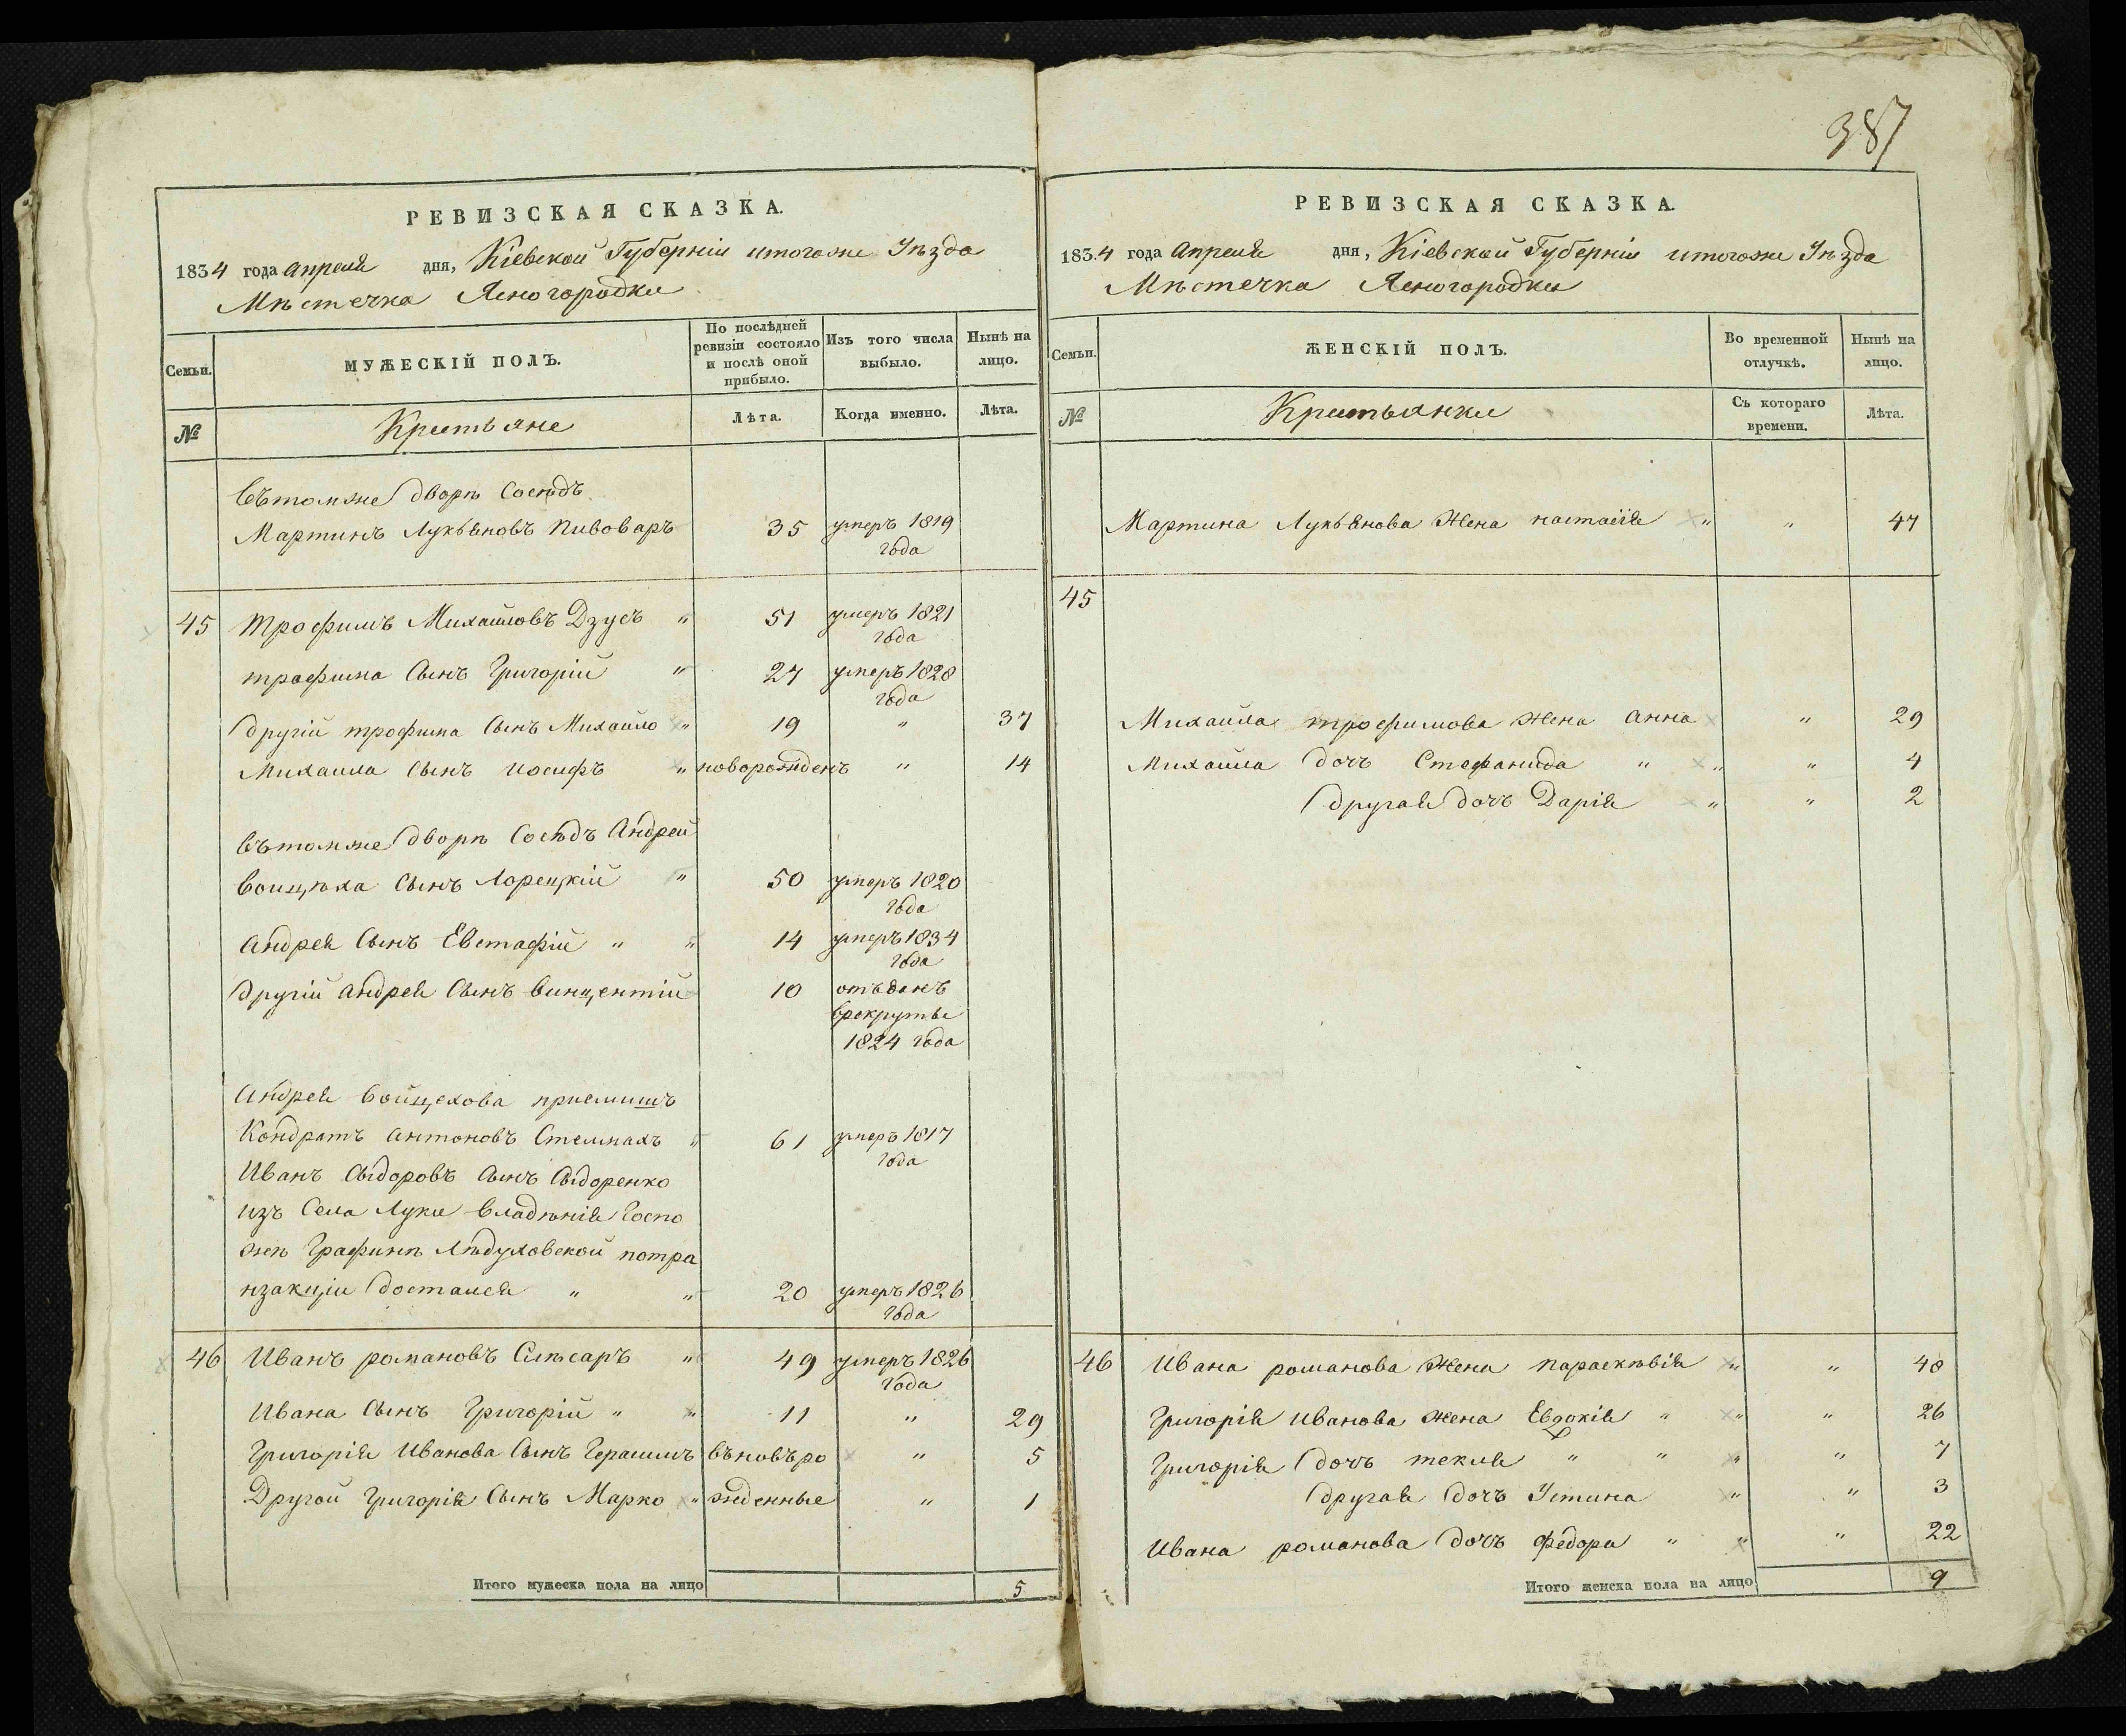 РЕВИЗСКАЯ СКАЗКА.
1834 года Апреля дня, Кіевской Губерніи итогоже Уѣзда
Мѣстечка Ясногородки
Семьи.
МУЖЕСКІЙ ПОЛЪ.
По послѣдней ревизіи состояло и послѣ оной прибыло.
Изъ того числа выбыло.
Нынѣ на лицо.
№
Крестьяне
Лѣта.
Когда именно.
Лѣта.
Вътомже дворѣ Сосѣдъ
Мартинъ Лукьяновъ Пивоваръ 35 умеръ 1819 года
45 Трофимъ Михайловъ Дзусъ " 51 умеръ 1821 года
трофима Сынъ Григорій " 27 умеръ 1828 года
другій трофима Сынъ Михайло " 19 " 37
Михаила Сынъ иосифъ " новорожденъ " 14
вътомже дворѣ Сосѣдъ Андрей
воицѣха Сынъ Лорецкій " 50 умеръ 1820 года
Андрея Сынъ Евстафій " " 14 умеръ 1834 года
другій Андрея Сынъ винцентій 10 отъданъ врекруты 1824 года
Андрея войцехова приемишъ
Кондратъ антоновъ Стельмахъ " 61 умеръ 1817 года
Иванъ Сыдоровъ Сынъ Сыдоренко
изъ Села Луки владѣнія Госпо
жѣ Графинѣ Лѣдуховской потра
нзакціи достался " " 20 умеръ 1826 года
46 Иванъ романовъ Слѣсаръ " 49 умеръ 1826 года
Ивана Сынъ Григорій " " 11 " 29
Григорія Иванова Сынъ Герасимъ въновъро " 5
Другой Григорія Сынъ Марко " жденные " 1
Итого мужеска пола на лицо 5
387
РЕВИЗСКАЯ СКАЗКА.
1834 года Апреля дня, Кіевской Губерніи итогоже Уѣзда
Мѣстечка Ясногородки
Семьи.
ЖЕНСКІЙ ПОЛЪ.
Во временной отлучкѣ.
Нынѣ на лицо.
№
Крестьянки
Съ котораго времени.
Лѣта.
Мартина Лукьянова Жена настасія " " 47
45
Михайла трофимова жена Анна " 29
Михайла дочь Стефанида " " " 4
другая дочь Дарія " " 2
46 Ивана романова Жена параскѣвія " " 48
Григорія иванова жена Евдокія " " " 26
Григорія дочь текля " " " " 7
другая дочь Устина " " 3
Ивана романова дочь федора " " " 22
Итого женска пола на лицо 9